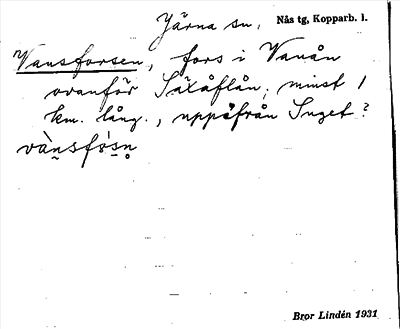 Järna sn. Nås tg, Kopparb. l.
Vansforsen, fors i Vanån
ovanför Säxåflån; minst 1
km. lång., uppifrån Inget?
vànsfó̀sn
Bror Lindén 1931